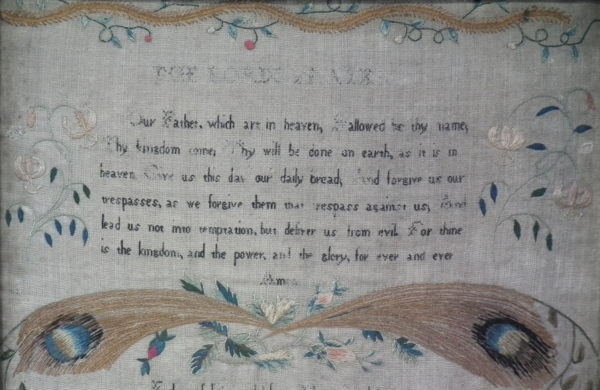 THE LORDS
Our Father, which art in heaven, Hallowed be thy name,
Thy kingdom come, Thy will be done on earth, as it is in
heaven Give us this day our daily bread, And forgive us our
trespasses, as we forgive them that trespass against us, And
lead us not into temptation, but deliver us from evil For thine
is the kingdom, and the power, and the glory, for ever and ever
Amen